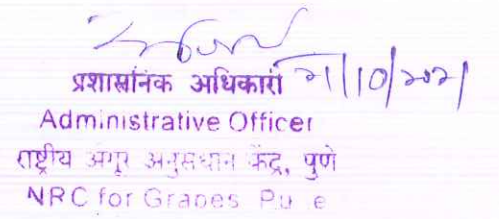 प्रशासनिक अधिकारी 21/10/2021
Administrative Officer
राष्ट्रीय अंगूर अनुसंधान केंद्र, पुणे
NRC for Grapes Pu e